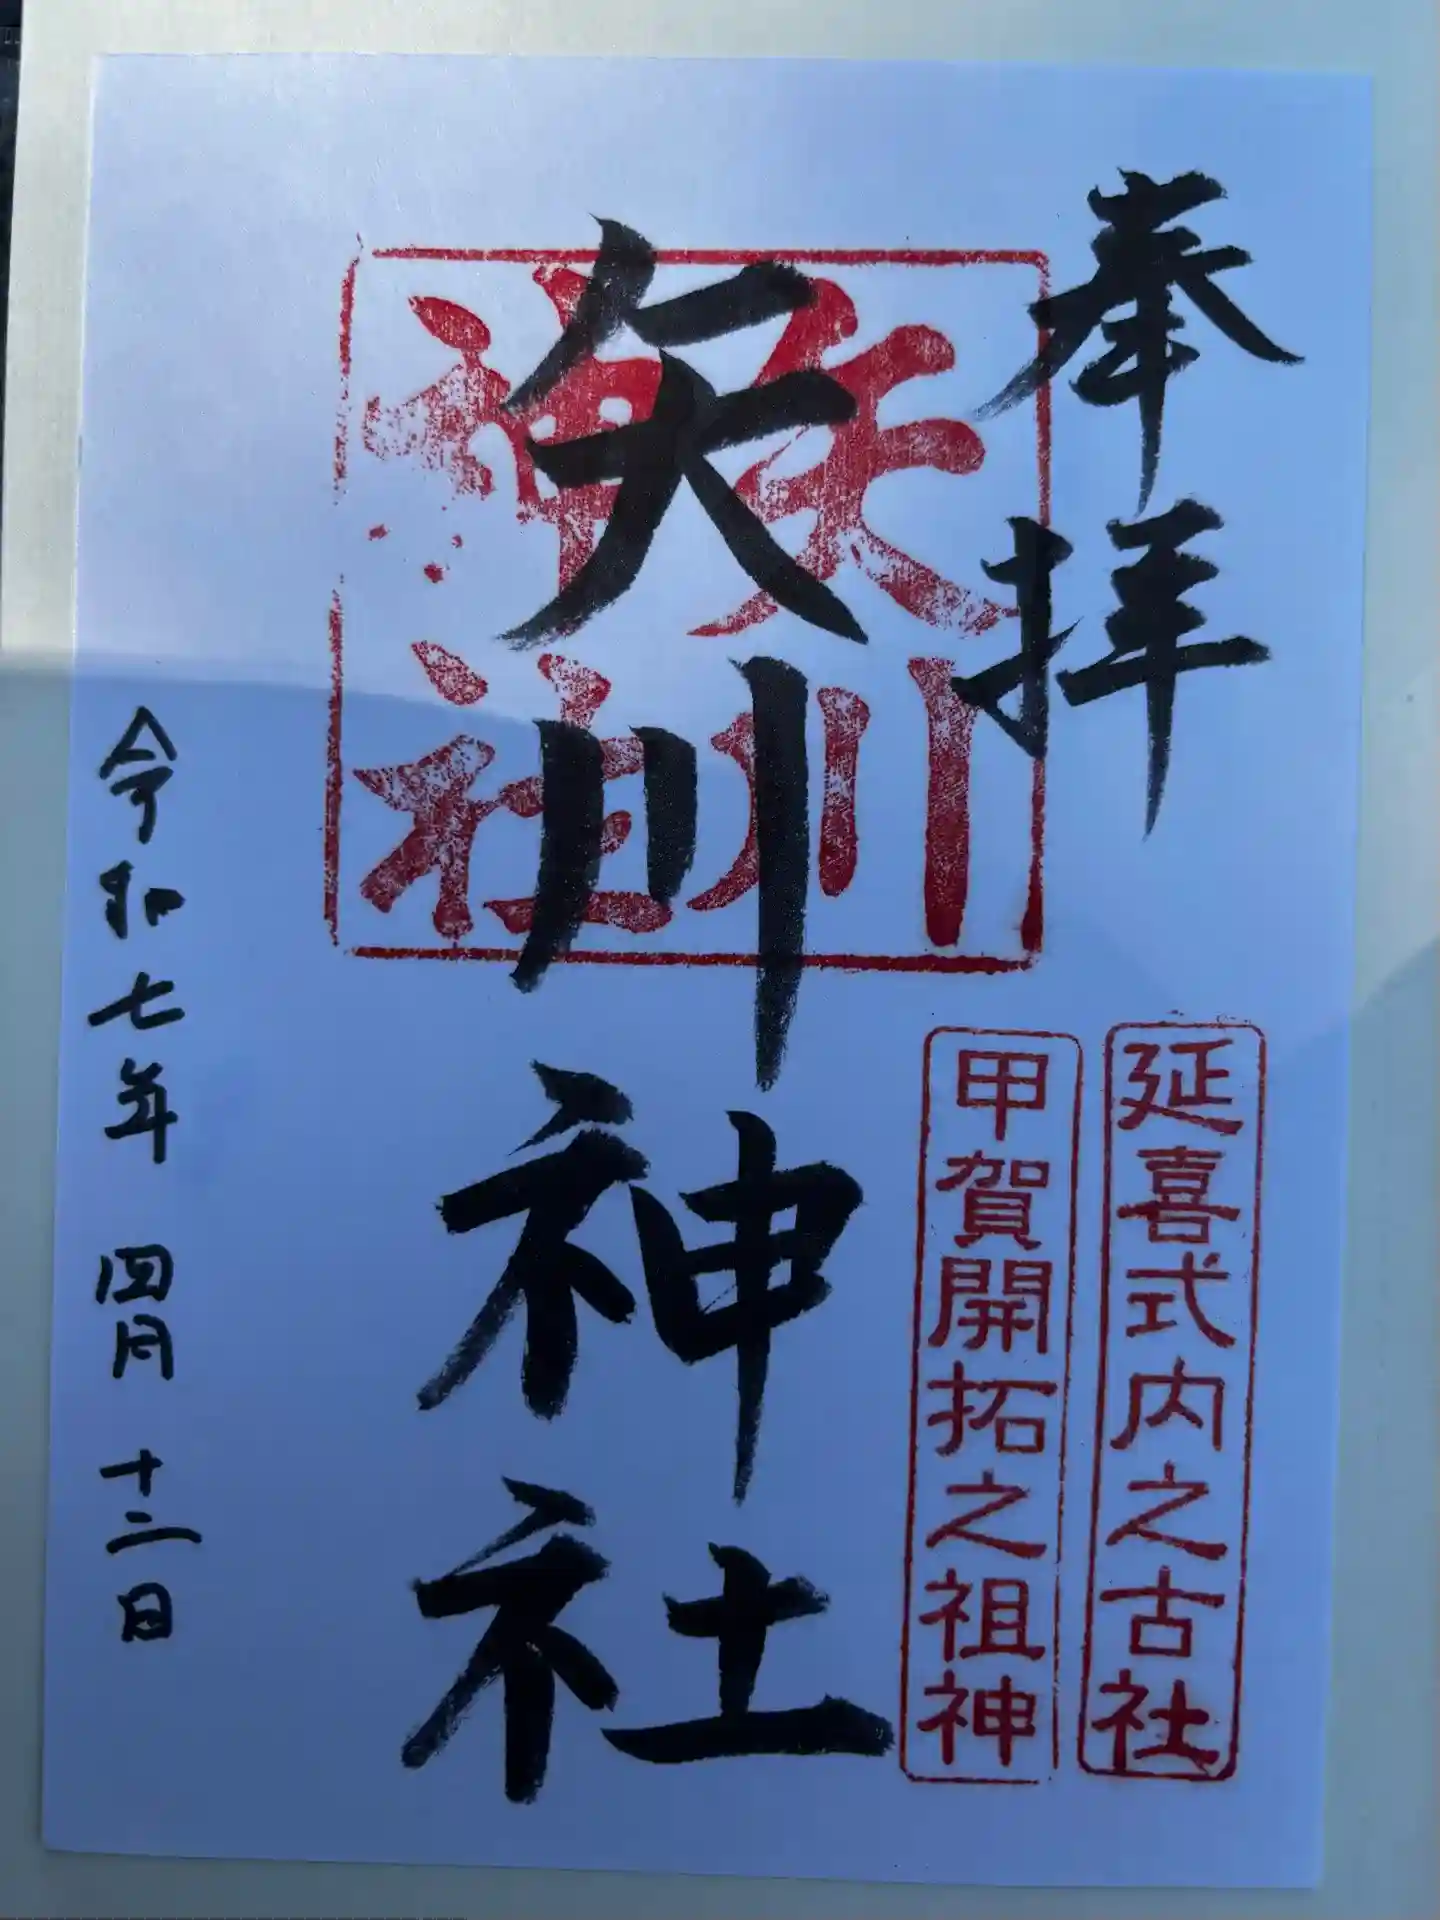 奉拝
延喜式内之古社
甲賀開拓之祖神
矢川神社
矢川
神社
令和七年 四月 十二日